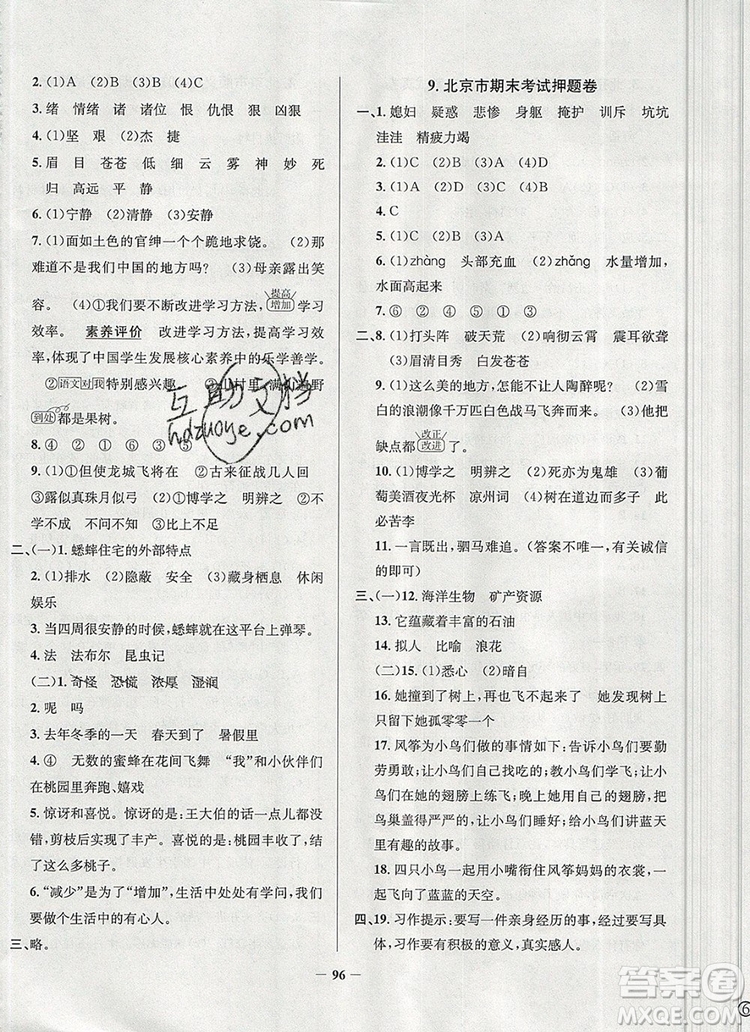 2. (1)A (2)B (3)B (4)C
3. 绪 情绪 诸 诸位 恨 仇恨 狠 凶狠
4. (1)坚 艰 (2)杰 捷
5. 眉 目 苍苍 低 细 云 雾 神 妙 死
归 高远 平 静
6. (1)宁静 (2)清静 (3)安静
7. (1)面如土色的官绅一个个跪地求饶。 (2)那
难道不是我们中国的地方吗? (3)母亲露出笑
容。 (4)①我们要不断改进学习方法, 提高 增加 学习
效率。 素养评价 改进学习方法,提高学习效
率,体现了中国学生发展核心素养中的乐学善学。
②语文对我特别感兴趣。 ③山村里,满山遍野
到处都是果树。
8. ④ ② ① ③ ⑤
9. (1)①但使龙城飞将在 ②古来征战几人回
③露似真珠月似弓 (2)①博学之 明辨之 ②不
学不成 不问不知 ③比上不足
二、(一)1. 蟋蟀住宅的外部特点
2. (1)排水 (2)隐蔽 安全 (3)藏身栖息 休闲
娱乐
3. 当四周很安静的时候,蟋蟀就在这平台上弹琴。
4. 法 法布尔 昆虫记
(二)1. 奇怪 恐慌 浓厚 湿润
2. 呢 吗
3. 去年冬季的一天 春天到了 暑假里
4. ④ 无数的蜜蜂在花间飞舞 “我”和小伙伴们
在桃园里奔跑、嬉戏
5. 惊讶和喜悦。惊讶的是:王大伯的话一点儿都没
错,剪枝后实现了丰产。喜悦的是:桃园丰收了,结
了这么多桃子。
6. “减少”是为了“增加”,生活中处处有学问,我们
要做生活中的有心人。
三、略。
9. 北京市期末考试押题卷
一、1. 媳妇 疑惑 悲惨 身躯 掩护 训斥 坑坑
洼洼 精疲力竭
2. (1)C (2)D (3)A (4)D
3. (1)A (2)B (3)A
4. C
5. (1)B (2)C (3)A
6. (1)zhàng 头部充血 (2)zhǎng 水量增加,
水面高起来
7. ⑥ ② ④ ⑤ ① ③
二、8. (1)打头阵 破天荒 (2)响彻云霄 震耳欲聋
(3)眉清目秀 白发苍苍
9. (1)这么美的地方,怎能不让人陶醉呢? (2)雪
白的浪潮像千万匹白色战马飞奔而来。 (3)他把
缺点都 改正 改进 了。
10. (1)博学之 明辨之 (2)死亦为鬼雄 (3)葡
萄美酒夜光杯 凉州词 (4)树在道边而多子 此
必苦李
11. 一言既出,驷马难追。(答案不唯一,有关诚信
的即可)
三、(一)12. 海洋生物 矿产资源
13. 它蕴藏着丰富的石油
14. 拟人 比喻 浪花
(二)15. (1)悉心 (2)暗自
16. 她撞到了树上,再也飞不起来了 她发现树上
只留下她孤零零一个
17. 风筝为小鸟们做的事情如下:告诉小鸟们要勤
劳勇敢;让小鸟们把她的身上当练习场;让小鸟们
把她的翅膀上当餐桌;晚上她用自己的翅膀,把
鸟巢盖得严严的,让小鸟们睡好;给小鸟们讲蓝天
里有趣的故事。
18. 四只小鸟一起用小嘴衔住风筝妈妈的衣裳,一
起飞向了蓝蓝的天空。
四、19. 习作提示:要写一件亲身经历的事,经过要写具
体,习作要有积极的意义,真实感人。
96
互助文档
hdzuoye.com
答案圈
MXQE.COM